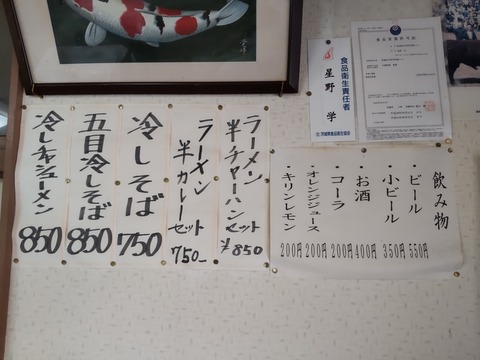 食品衛生責任者
星野 学
食品営業許可証
ラーメン
半チャーハン
セット
¥850
ラーメン
半カレー
セット
750-
冷しそば
750
五目冷しそば
850
冷しチャシューメン
850
飲み物
・ビール 550円
・小ビール 350円
・お酒 400円
・コーラ 200円
・オレンジジュース 200円
・キリンレモン 200円